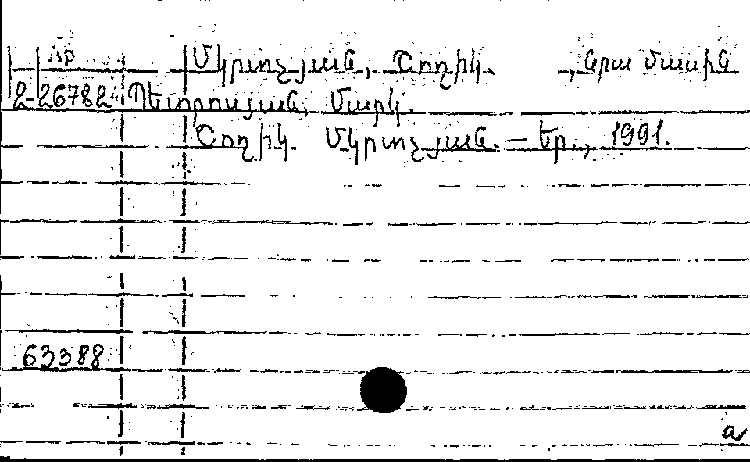 Ար Մկրտչյան, Շողիկ, նրա մասին
2-26782 Պետրոսյան, Մարկ.
Շողիկ Մկրտչյան. — Եր., 1991.
63388
a